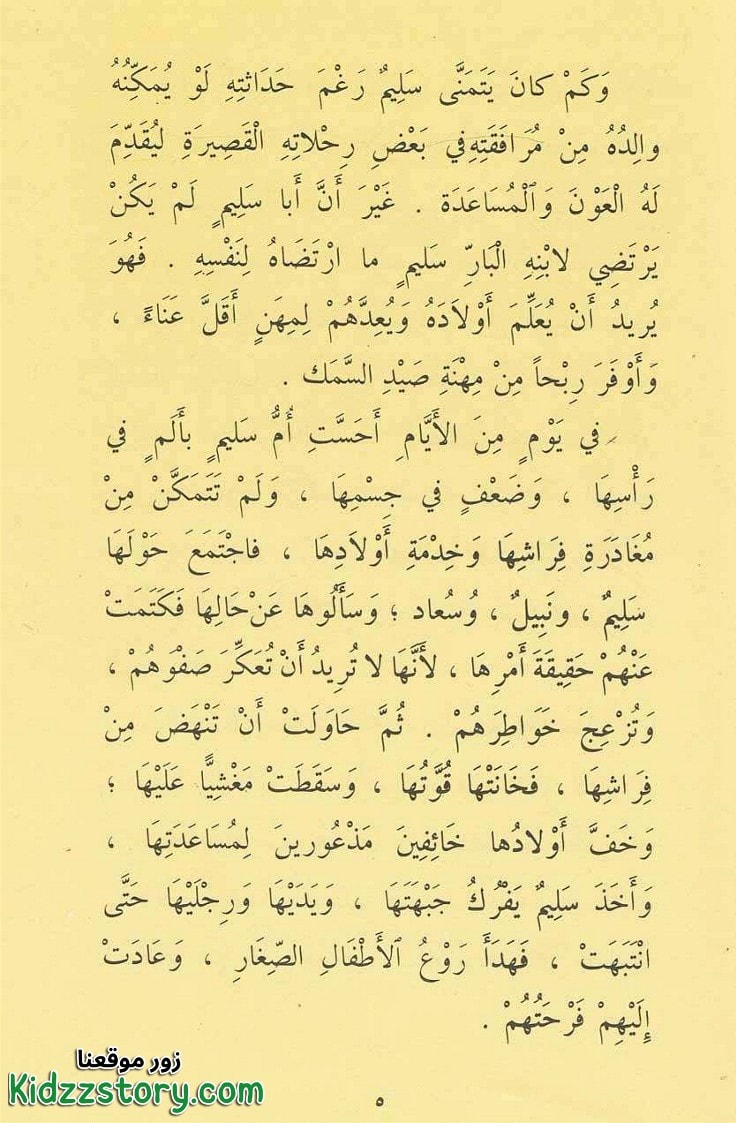 وَكَمْ كانَ يَتَمَنَّى سَلِيمٌ رَغْمَ حَدَاثتِهِ لَوْ يُمَكِّنُهُ
والِدُهُ مِنْ مُرَافَقَتِهِ في بَعْضِ رِحْلاتِهِ الْقَصِيرَةِ ليُقَدِّمَ
لَهُ الْعَوْنَ وَٱلْمُسَاعَدَة . غَيْرَ أَنَّ أَبا سَلِيمٍ لَمْ يَكُنْ
يَرْتَضِي لابْنِهِ الْبَارِّ سَليمٍ ما ارْتَضَاهُ لِنَفْسِهِ . فَهُوَ
يُريدُ أَنْ يُعَلِّمَ أَوْلَادَهُ وَيُعِدَّهُمْ لِمِهَنٍ أَقَلَّ عَنَاءً ،
وَأَوْفَرَ رِبْحاً مِنْ مِهْنَةِ صَيْدِ السَّمَك .
في يَوْمٍ مِنَ الأَيَّامِ أَحَسَّتِ أُمُّ سَليمٍ بأَلَمٍ في
رَأْسِهَا ، وَضَعْفٍ في جِسْمِهَا ، وَلَمْ تَتَمَكَّنْ مِنْ
مُغَادَرَةِ فِرَاشِهَا وَخِدْمَةِ أَوْلَادِهَا ، فاجْتَمَعَ حَوْلَهَا
سَلِيمٌ ، ونَبِيلٌ ، وُسُعاد ؛ وَسَأَلُوهَا عَنْ حَالِهَا فَكَتَمَتْ
عَنْهُمْ حَقِيقَةَ أَمْرِهَا ، لأَنَّهَا لا تُرِيدُ أَنْ تُعَكِّرَ صَفْوَهُمْ ،
وَتُزْعِجَ خَوَاطِرَهُمْ . ثُمَّ حَاوَلَتْ أَنْ تَنْهَضَ مِنْ
فِرَاشِهَا ، فَخَانَتْهَا قُوَّتُهَا ، وَسَقَطَتْ مَغْشِيًّا عَلَيْهَا ؛
وَخَفَّ أَوْلادُها خَائِفِينَ مَذْعُورينَ لِمُسَاعَدَتِهَا ،
وَأَخَذَ سَلِيمٌ يَفْرُكُ جَبْهَتَهَا ، وَيَدَيْهَا وَرِجْلَيْهَا حَتَّى
انْتَبَهَتْ ، فَهَدَأَ رَوْعُ ٱلأَطْفَالِ الصِّغَارِ ، وَعَادَتْ
إِلَيْهِمْ فَرْحَتُهُمْ .
زور موقعنا
Kidzzstory.com
٥